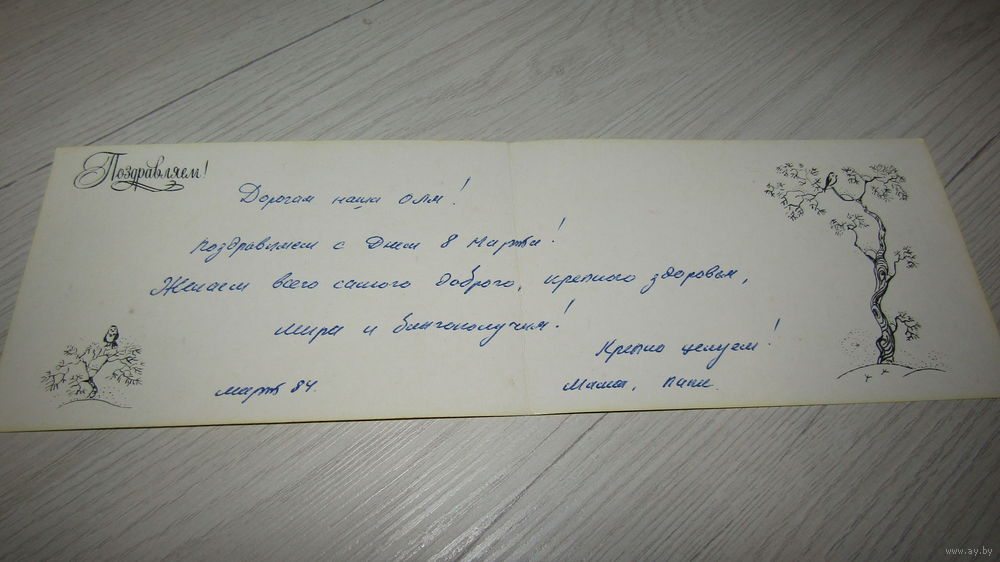 Поздравляем!
Дорогая наша Оля!
Поздравляем с Днем 8 Марта!
Желаем всего самого доброго, крепкого здоровья,
мира и благополучия!
Крепко целуем!
Март 84. Мама, папа.
www.ay.by